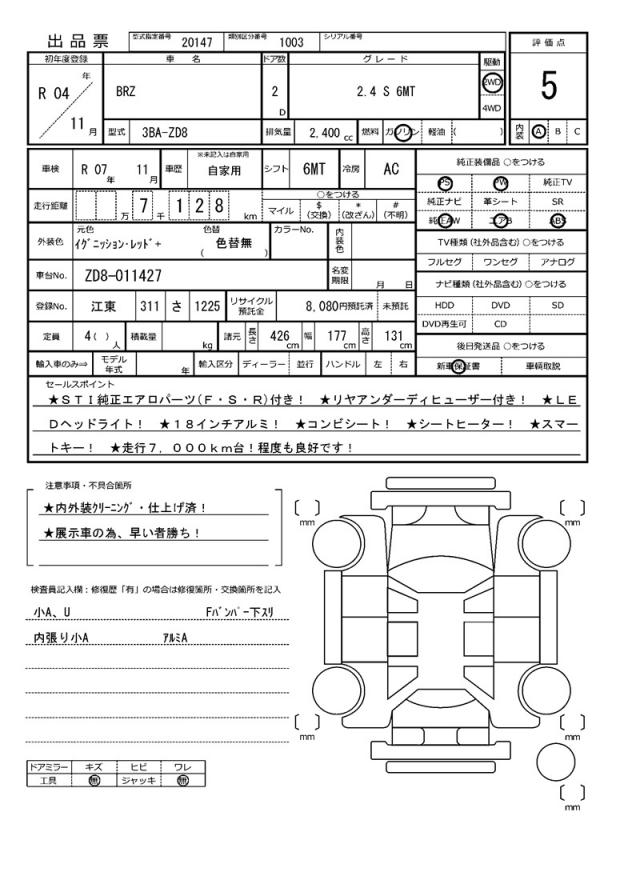 出品票 型式指定番号 20147 類別区分番号 1003 シリアル番号
評価点
初年度登録 車名 ドア数 グレード 駆動
R 04 年 11 月 BRZ 2 D 2.4 S 6MT 2WD 4WD
5
型式 3BA-ZD8 排気量 2,400 cc 燃料 ガソリン 軽油 ( )
内装 A B C
車検 R 07 年 11 月 車歴 ※未記入は自家用 自家用 シフト 6MT 冷房 AC
純正装備品 ○をつける
PS PW 純正TV
純正ナビ 革シート SR
純正AW エアB ABS
走行距離 万 7 千 1 2 8 km
○をつける
マイル $ (交換) * (改ざん) # (不明)
外装色 元色 イグニッション・レッド+ 色替 ( 色替無 ) カラーNo. 内装色
TV種類 (社外品含む) ○をつける
フルセグ ワンセグ アナログ
車台No. ZD8-011427 名変期限 月 日
ナビ種類 (社外品含む) ○をつける
HDD DVD SD
DVD再生可 CD
登録No. 江東 311 さ 1225 リサイクル預託金 8,080円預託済 未預託
定員 4( ) 人 積載量 kg 諸元 長さ 426 cm 幅 177 cm 高さ 131 cm
後日発送品 ○をつける
新車保証書 車輌取説
輸入車のみ⇒ モデル年式 年 輸入区分 ディーラー 並行 ハンドル 左 右
セールスポイント
★STI純正エアロパーツ(F・S・R)付き! ★リヤアンダーディヒューザー付き! ★LE
Dヘッドライト! ★18インチアルミ! ★コンビシート! ★シートヒーター! ★スマー
トキー! ★走行7，000km台!程度も良好です!
注意事項・不具合箇所
★内外装クリーニング・仕上げ済!
★展示車の為、早い者勝ち!
検査員記入欄：修復歴「有」の場合は修復箇所・交換箇所を記入
小A、U Fバンパー下スリ
内張り小A アルミA
ドアミラー キズ ヒビ ワレ
工具 無 ジャッキ 無
mm mm
mm mm
mm